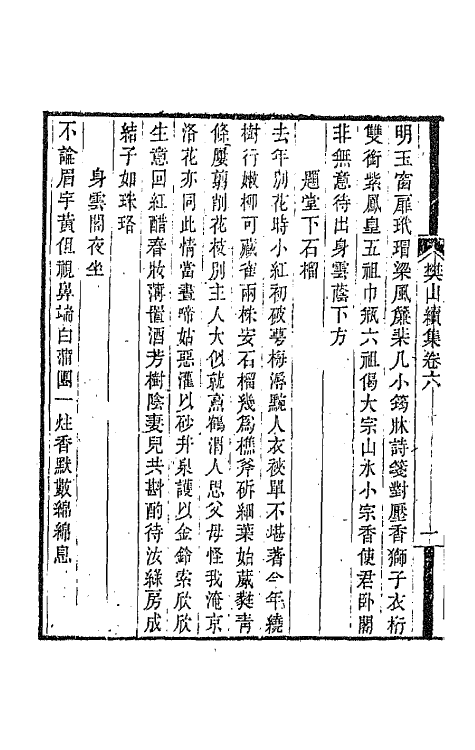 樊山續集卷六
一
明玉窗扉玳瑁梁風簾棐几小筠牀詩箋對壓香獅子衣桁
雙銜紫鳳皇五祖巾瓶六祖偈大宗山水小宗香使君卧閣
非無意待出身雲蔭下方
題堂下石榴
去年別花時小紅初破萼梅潯騐人衣裌單不堪著今年繞
樹行嫩柳可藏雀兩株安石榴幾爲樵斧斫細葉始葳蕤靑
條屢翦削花枝別主人大似就髙鶴渭人思父母怪我淹京
洛花亦同此情當晝啼姑惡灌以砂井泉護以金鈴索欣欣
生意回紅醋春妝薄催酒芳樹陰妻兒共斟酌待汝綠房成
結子如珠珞
身雲閣夜坐
不論眉宇黃但視鼻端白蒲團一炷香默數綿綿息